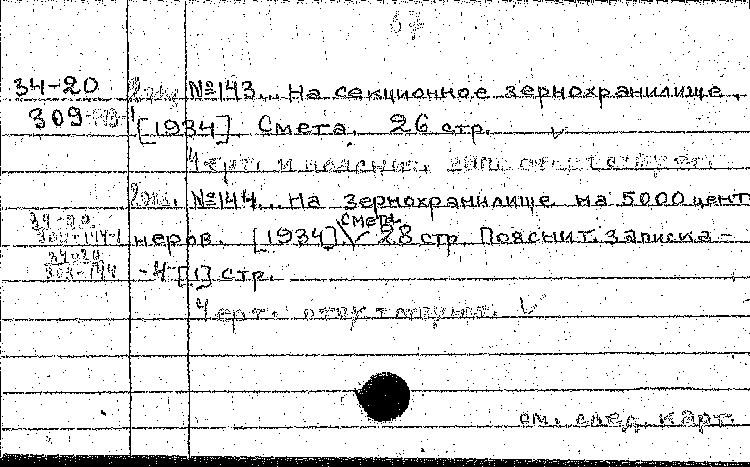 67
34-20 2экз. №143... На секционное зернохранилище.
309-143-1 [1934]. Смета. 26 стр. ✓
Черт. и пояснит. зап. отсутствует.
2экз. №144... На зернохранилище на 5000 цент
34-20 смета.
309-144-1 неров. [1934] ✓ 28 стр. Пояснит. записка –
34-20
309-144 - 4 [1] стр.
Черт. отсутствуют. ✓
см. след. карт.